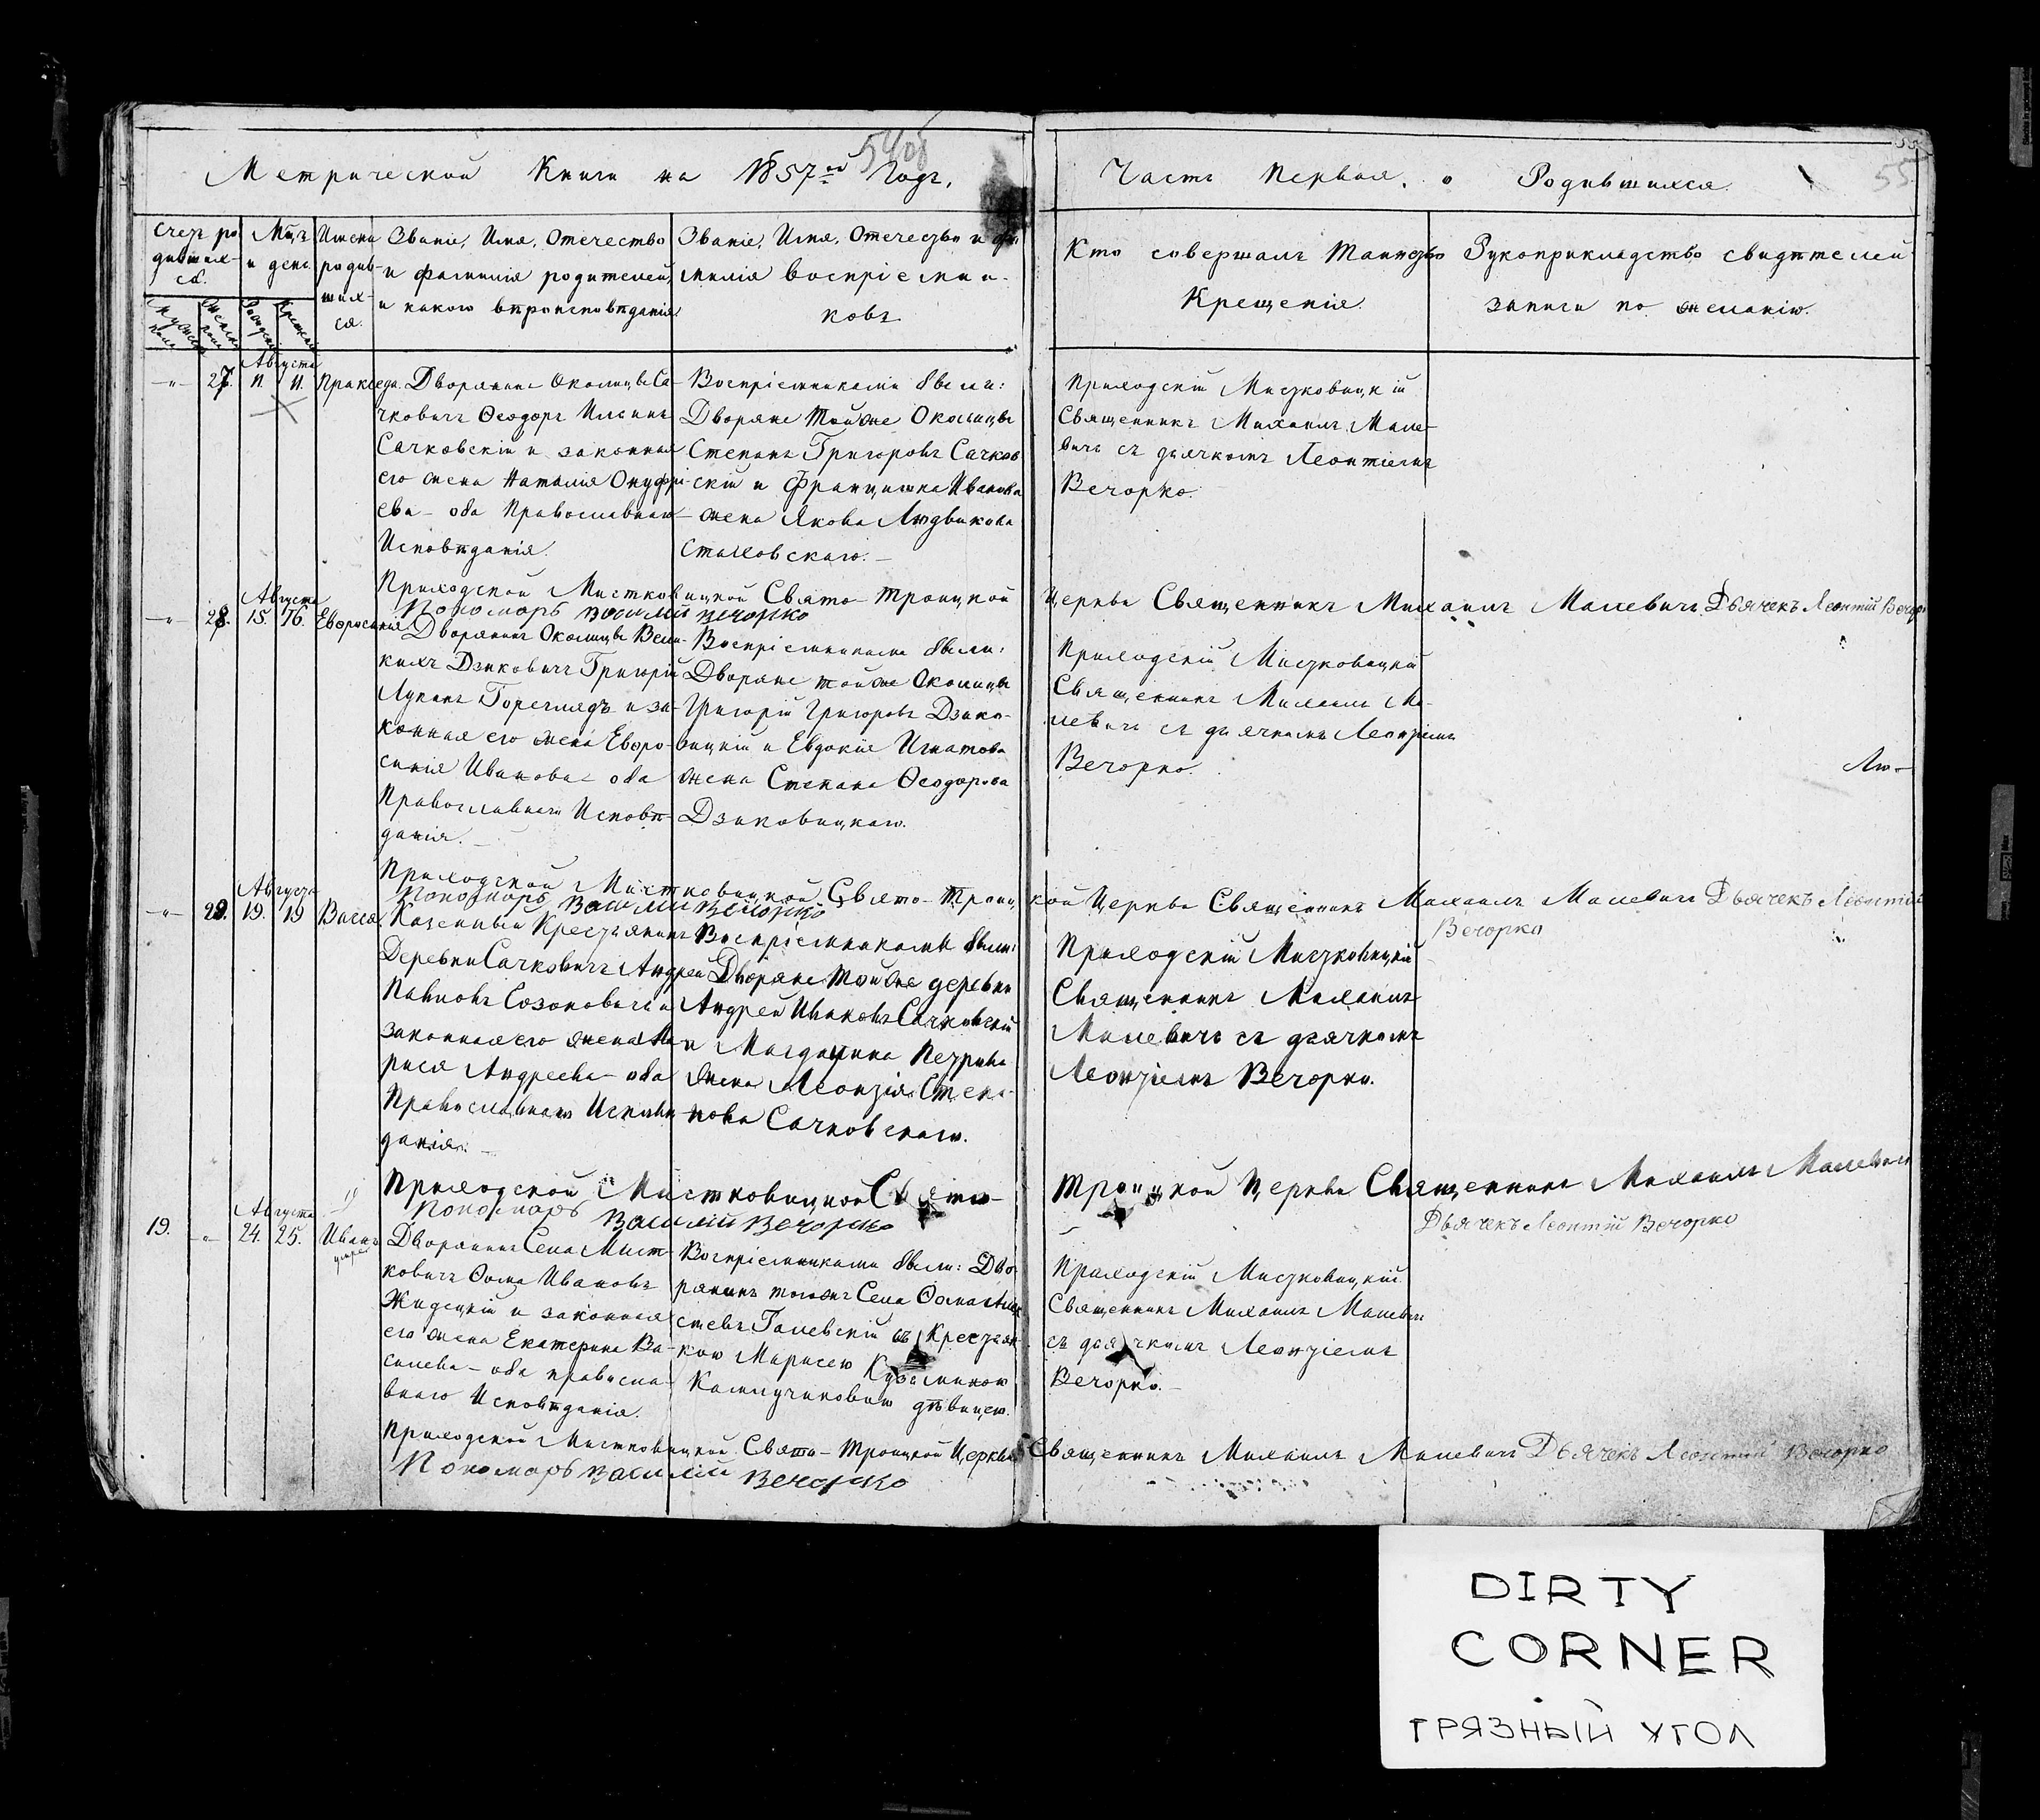 54об
Метрической Книги на 1857ой Годъ.
Часть Первая. о Родившихся.
55
Счетъ ро
дивших-
ся.
Мцъ
и день.
Имена
родив-
ших-
ся.
Званіе, Имя, Отечество
и фамилія родителей,
и какого вѣроисповѣданія
Званіе, Имя, Отечество и фа-
милія воспріемни-
ковъ
Кто совершалъ Таинство
Крещенія.
Рукоприкладство свидѣтелей
записи по желанію.
Августа
-"- 27. 11. 11. Пракседа.
Дворянинъ Околицы Са-
чковичъ Ѳеодоръ Ильинъ
Сачковскій и законная
его жена Наталія Онуфрі-
ева - оба Православнаго
Исповѣданія.
Воспріемниками были:
Дворяне той же Околицы
Степанъ Григоровъ Сачков-
скій и Францишка Иванова
жена Якова Людвикова
Стаховскаго.
Приходскій Мистковицкій
Священникъ Михаилъ Мале-
вичъ съ дьячкомъ Леонтіемъ
Вечорко.
Приходской Мистковицкой Свято-Троицкой Церкви Священникъ Михаилъ Малевичъ Дьячекъ Леонтій Вечорко
Пономарь Василій Вечорко
Августа
-"- 28. 15. 16. Евфросинія
Дворянинъ Околицы Вели-
кихъ Дзиковичъ Григорій
Лукинъ Гореглядъ и за-
конная его жена Евфро-
синія Иванова - оба
Православнаго Исповѣ-
данія.
Воспріемниками были:
Дворяне той же Околицы
Григорій Григоровъ Дзико-
вицкій и Евдокія Игнатова
жена Степана Ѳеодорова
Дзиковицкаго.
Приходскій Мистковицкій
Священникъ Михаилъ Ма-
левичъ съ дьячкомъ Леонтіемъ
Вечорко.
Лю-
Приходской Мистковицкой Свято-Троицкой Церкви Священникъ Михаилъ Малевичъ Дьячекъ Леонтій
Вечорко
Пономарь Василій Вечорко
Августа
-"- 29. 19. 19 Васса.
Казенный Крестьянинъ
Деревни Сачковичъ Андрей
Павловъ Созоновичъ и
законная его жена Ма-
рися Андреева - оба
Православнаго Исповѣ-
данія.
Воспріемниками были:
Дворяне той же деревни
Андрей Ивановъ Сачковскій
и Магдалина Петрива
жена Леонтія Степа-
нова Сачковскаго.
Приходскій Мистковицкій
Священникъ Михаилъ
Малевичъ съ дьячкомъ
Леонтіемъ Вечорко.
Приходской Мистковицкой Свято-Троицкой Церкви Священникъ Михаилъ Малевичъ
Дьячекъ Леонтій Вечорко
Пономарь Василій Вечорко
Августа
19. -"- 24. 25. Иванъ
умре
Дворянинъ Села Мист-
ковичъ Ѳома Ивановъ
Жидецкій и законная
его жена Екатерина Ва-
силева - оба правосла-
внаго Исповѣданія.
Воспріемниками были: Дво-
рянинъ тогожъ Села Ѳома
Галевскій съ Крестьян-
кою Марисею Кузьминою
дѣвицею.
Приходскій Мистковицкій
Священникъ Михаилъ Малевичъ
съ дьячкомъ Леонтіемъ
Вечорко.
Приходской Мистковицкой Свято-Троицкой Церкви Священникъ Михаилъ Малевичъ Дьячекъ Леонтій Вечорко
Пономарь Василій Вечорко
DIRTY
CORNER
ГРЯЗНЫЙ УГОЛ